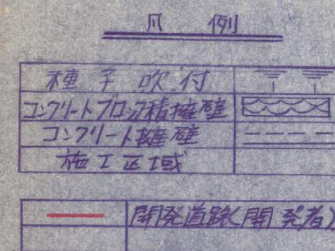 凡例
種子吹付
コンクリートブロック積擁壁
コンクリート擁壁
施工区域
開発道路(開発者)